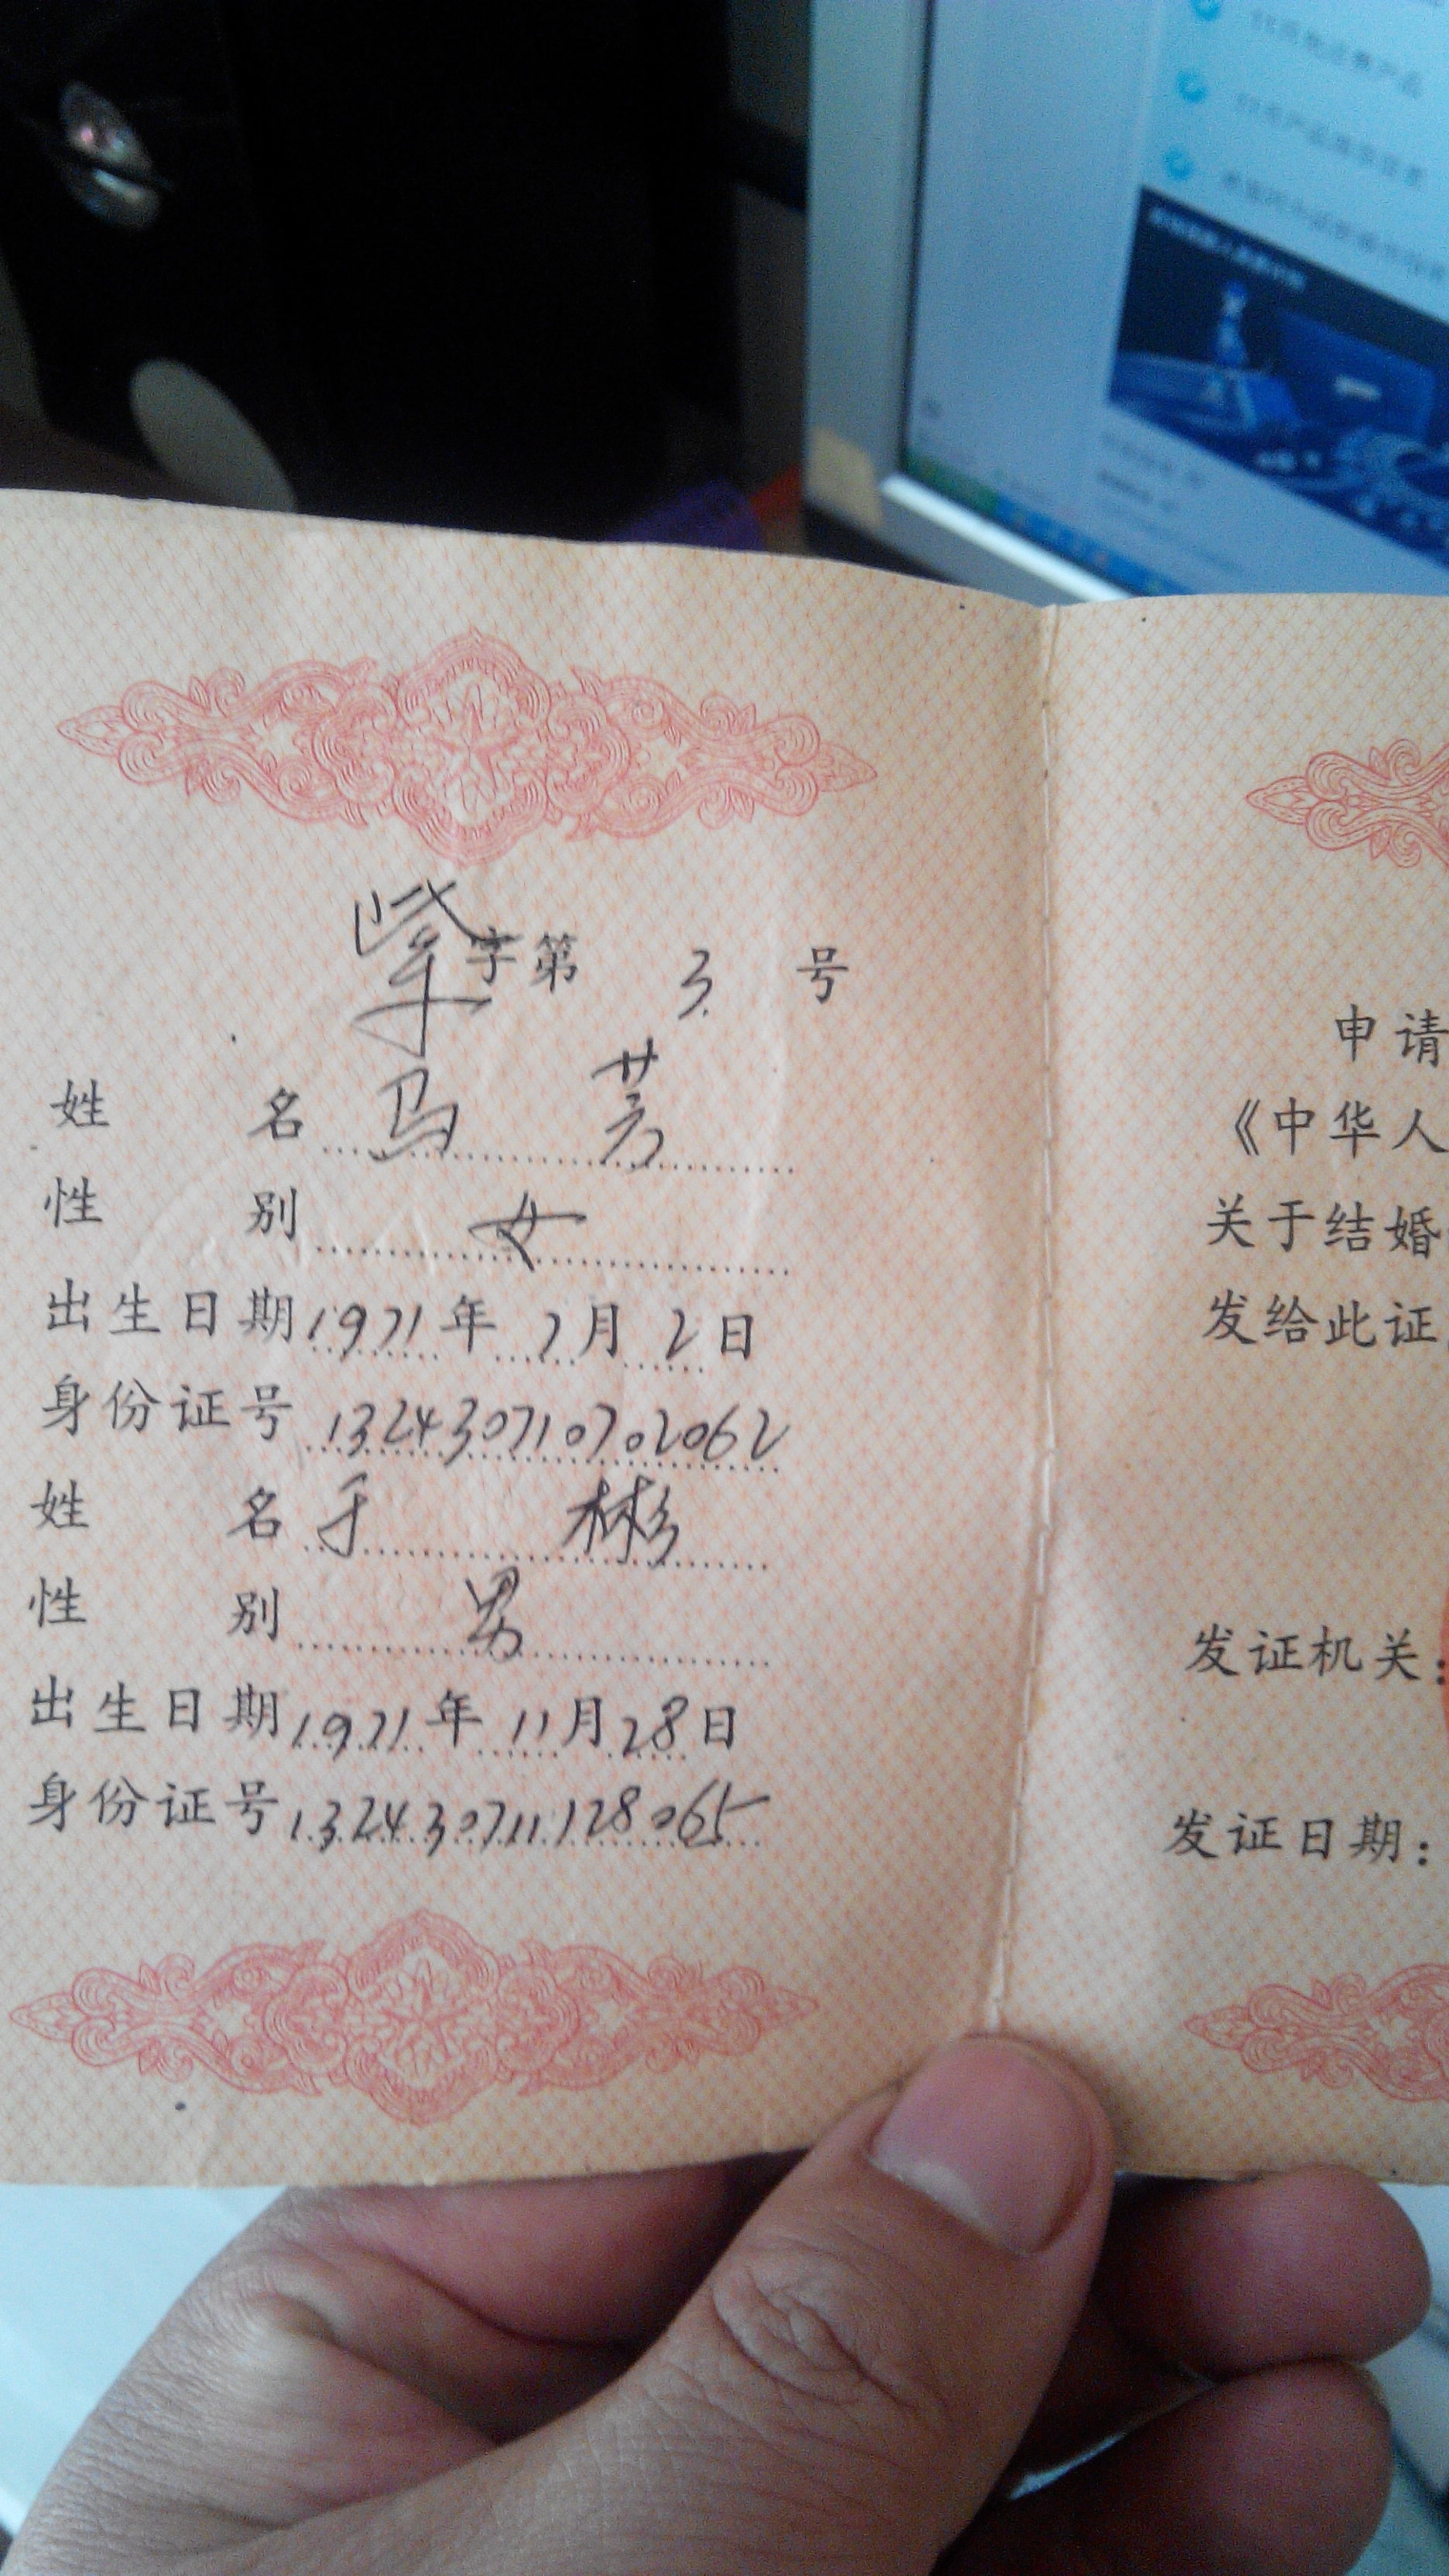 字第 3 号
姓 名 马 芳
性 别 女
出生日期 1971 年 7 月 2 日
身份证号 132430710702062
姓 名 于 彬
性 别 男
出生日期 1971 年 11 月 28 日
身份证号 132430711128065
申请
《中华人
关于结婚
发给此证
发证机关：
发证日期：